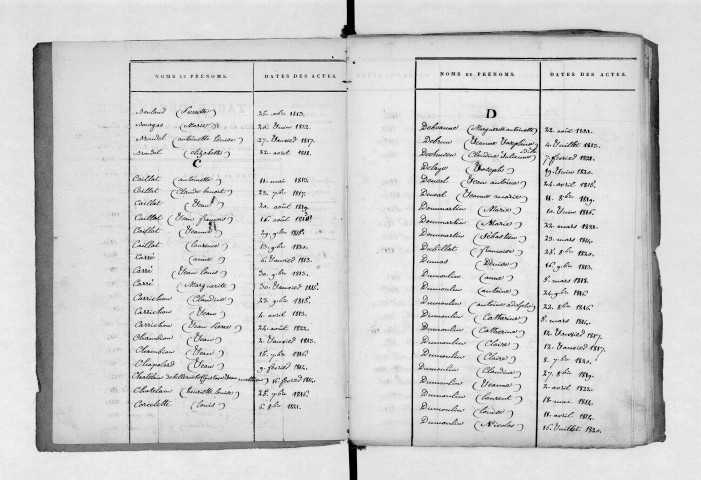 NOMS ET PRÉNOMS. DATES DES ACTES.
Bouland (Pierrette) 25. xbre 1813.
Bourgas (Marie) 26. Juin 1822.
Brandel (antoinette Louise) 27. Janvier 1817.
Brandel (Elizabeth) 22. avril 1818.
C
Caillat (antoinette) 11. mai 1813.
Caillat (Claude benoit) 23. 7bre 1817.
Caillat (Jean) 20. août 1819.
Caillat (Jean françois) 16. août 1818.
Caillat (Jeanne) 29. 9bre 1816.
Caillat (Laurence) 13. 9bre 1820.
Carré (anne) 6. Janvier 1813.
Carré (Jean Louis) 30. 9bre 1813.
Carré (Marguerite) 30. Janvier 1816.
Carrichon (Claudine) 23. 9bre 1815.
Carrichon (Jean) 4. avril 1813.
Carrichon (Jean Pierre) 24. août 1822.
Chambion (Jean) 2. Janvier 1813.
Chambion (Jean) 16. 9bre 1816.
Chapolard (Jean) 9. février 1814.
16. février 1814.
Chatelain (henriette Louise) 28. 7bre 1816.
Corcelette (Louis) 6. 8bre 1821.
NOMS ET PRÉNOMS. DATES DES ACTES.
D
(Marguerite antoinette) 22. août 1821.
Debrun (Jeanne Josephine) 4. Juillet 1813.
(Claudine Julienne) 7. février 1821.
Delaye (Joseph) 19. Juin 1820.
(Jean antoine) 24. avril 1815.
(Jeanne marie) 11. 8bre 1819.
Dommartin (Marie) 10. Juin 1816.
Dommartin (Marie) 22. mars 1818.
Dommartin (Sébastien) 23. mars 1814.
Dubillot (francoise) 28. 8bre 1820.
Dumas (Denise) 16. 9bre 1813.
Dumoulin (anne) 5. mars 1818.
Dumoulin (antoine) 24. 9bre 1816
Dumoulin (antoine adolphe) 22. 8bre 1816
Dumoulin (Catherine) 5. mars 1814.
Dumoulin (Catherine) 12. Janvier 1817.
Dumoulin (Claire) 12. Janvier 1817.
Dumoulin (Claire) 8. 7bre 1821.
Dumoulin (Claudine) 27. 8bre 1819.
Dumoulin (Jeanne) 2. avril 1822.
Dumoulin (Laurent) 18. mai 1814.
Dumoulin (Louise) 11. avril 1814.
Dumoulin (Nicolas) 16. Juillet 1820.